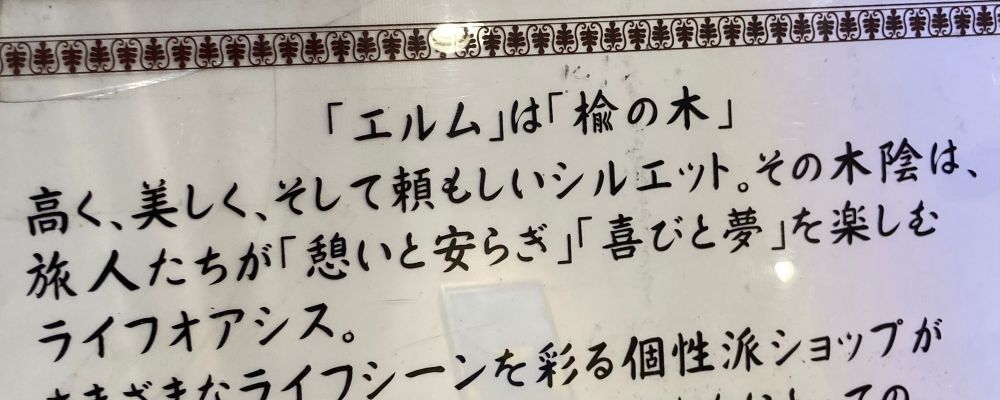 「エルム」は「楡の木」
高く、美しく、そして頼もしいシルエット。その木陰は、
旅人たちが「憩いと安らぎ」「喜びと夢」を楽しむ
ライフオアシス。
さまざまなライフシーンを彩る個性派ショップが